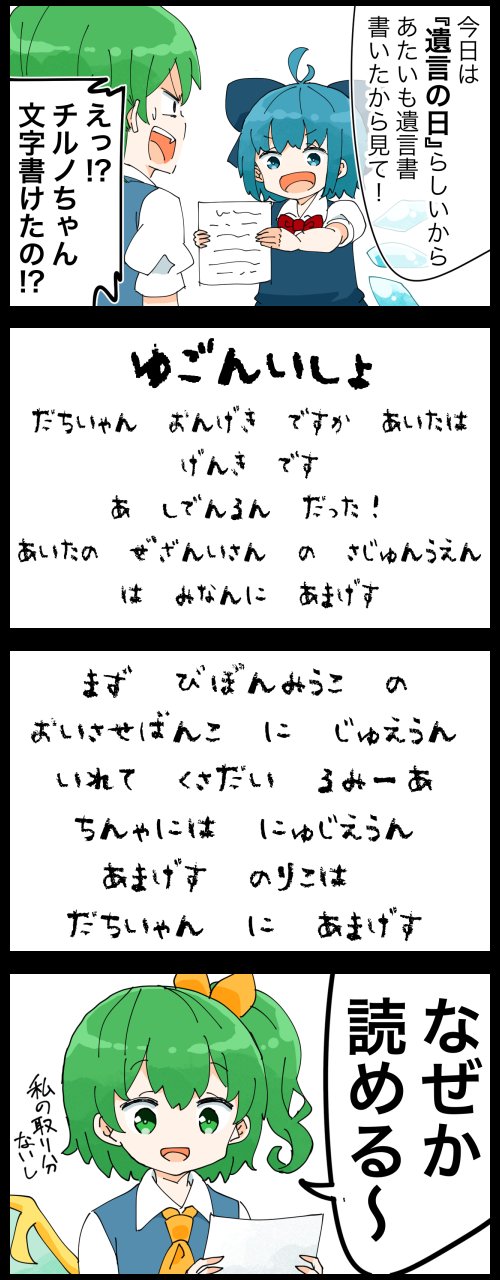 今日は
『遺言の日』らしいから
あたいも遺言書
書いたから見て！
えっ!?
チルノちゃん
文字書けたの!?
ゆごんいしょ
だちいゃん おんげき ですか あいたは
げんき です
あ しでんるん だった！
あいたの ぜざんいさん の さじゅんうえん
は みなんに あまげす
まず びぼんみうこ の
おいさせばんこ に じゅえうん
いれて くさだい るみーあ
ちんゃには にゅじえうん
あまげす のりこは
だちいゃん に あまげす
なぜか
読める〜
私の取り分
ないし